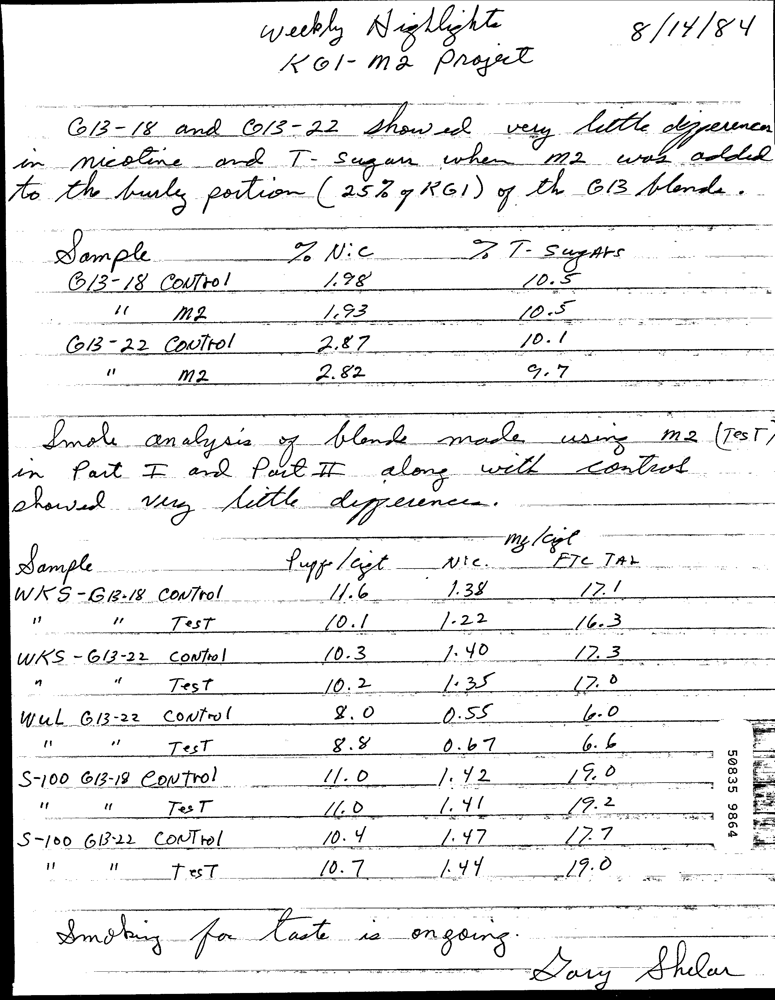 Weekly Highlights 8/14/84
KG1-M2 Project
G13-18 and G13-22 showed very little differences
in nicotine and T-sugars when M2 was added
to the burley portion (25% of KG1) of the G13 blends.
Sample % Nic % T-Sugars
G13-18 Control 1.98 10.5
" M2 1.93 10.5
G13-22 Control 2.87 10.1
" M2 2.82 9.7
Smoke analysis of blends made using M2 (Test)
in Part I and Part II along with control
showed very little differences.
mg/cigt
Sample Puffs/cigt Nic. FTC TAR
WKS-G13-18 Control 11.6 1.38 17.1
" " Test 10.1 1.22 16.3
WKS-G13-22 Control 10.3 1.40 17.3
" " Test 10.2 1.35 17.0
WUL G13-22 Control 8.0 0.55 6.0
" " Test 8.8 0.67 6.6
S-100 G13-18 Control 11.0 1.42 19.0
" " Test 11.0 1.41 19.2
S-100 G13-22 Control 10.4 1.47 17.7
" " Test 10.7 1.44 19.0
Smoking for taste is ongoing.
Gary Shelar
50835 9864